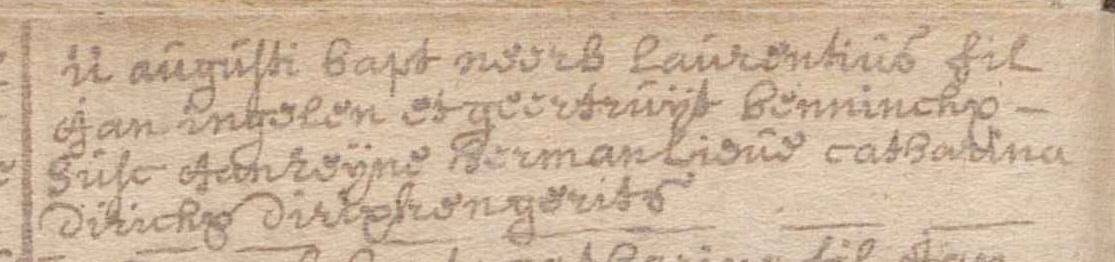 11 augusti bapt neerb laurentius fil
Jan ingelen et geertruijt benninchx -
Susc Jan reijne herman lieue catharina
dirickx dirixken gerits